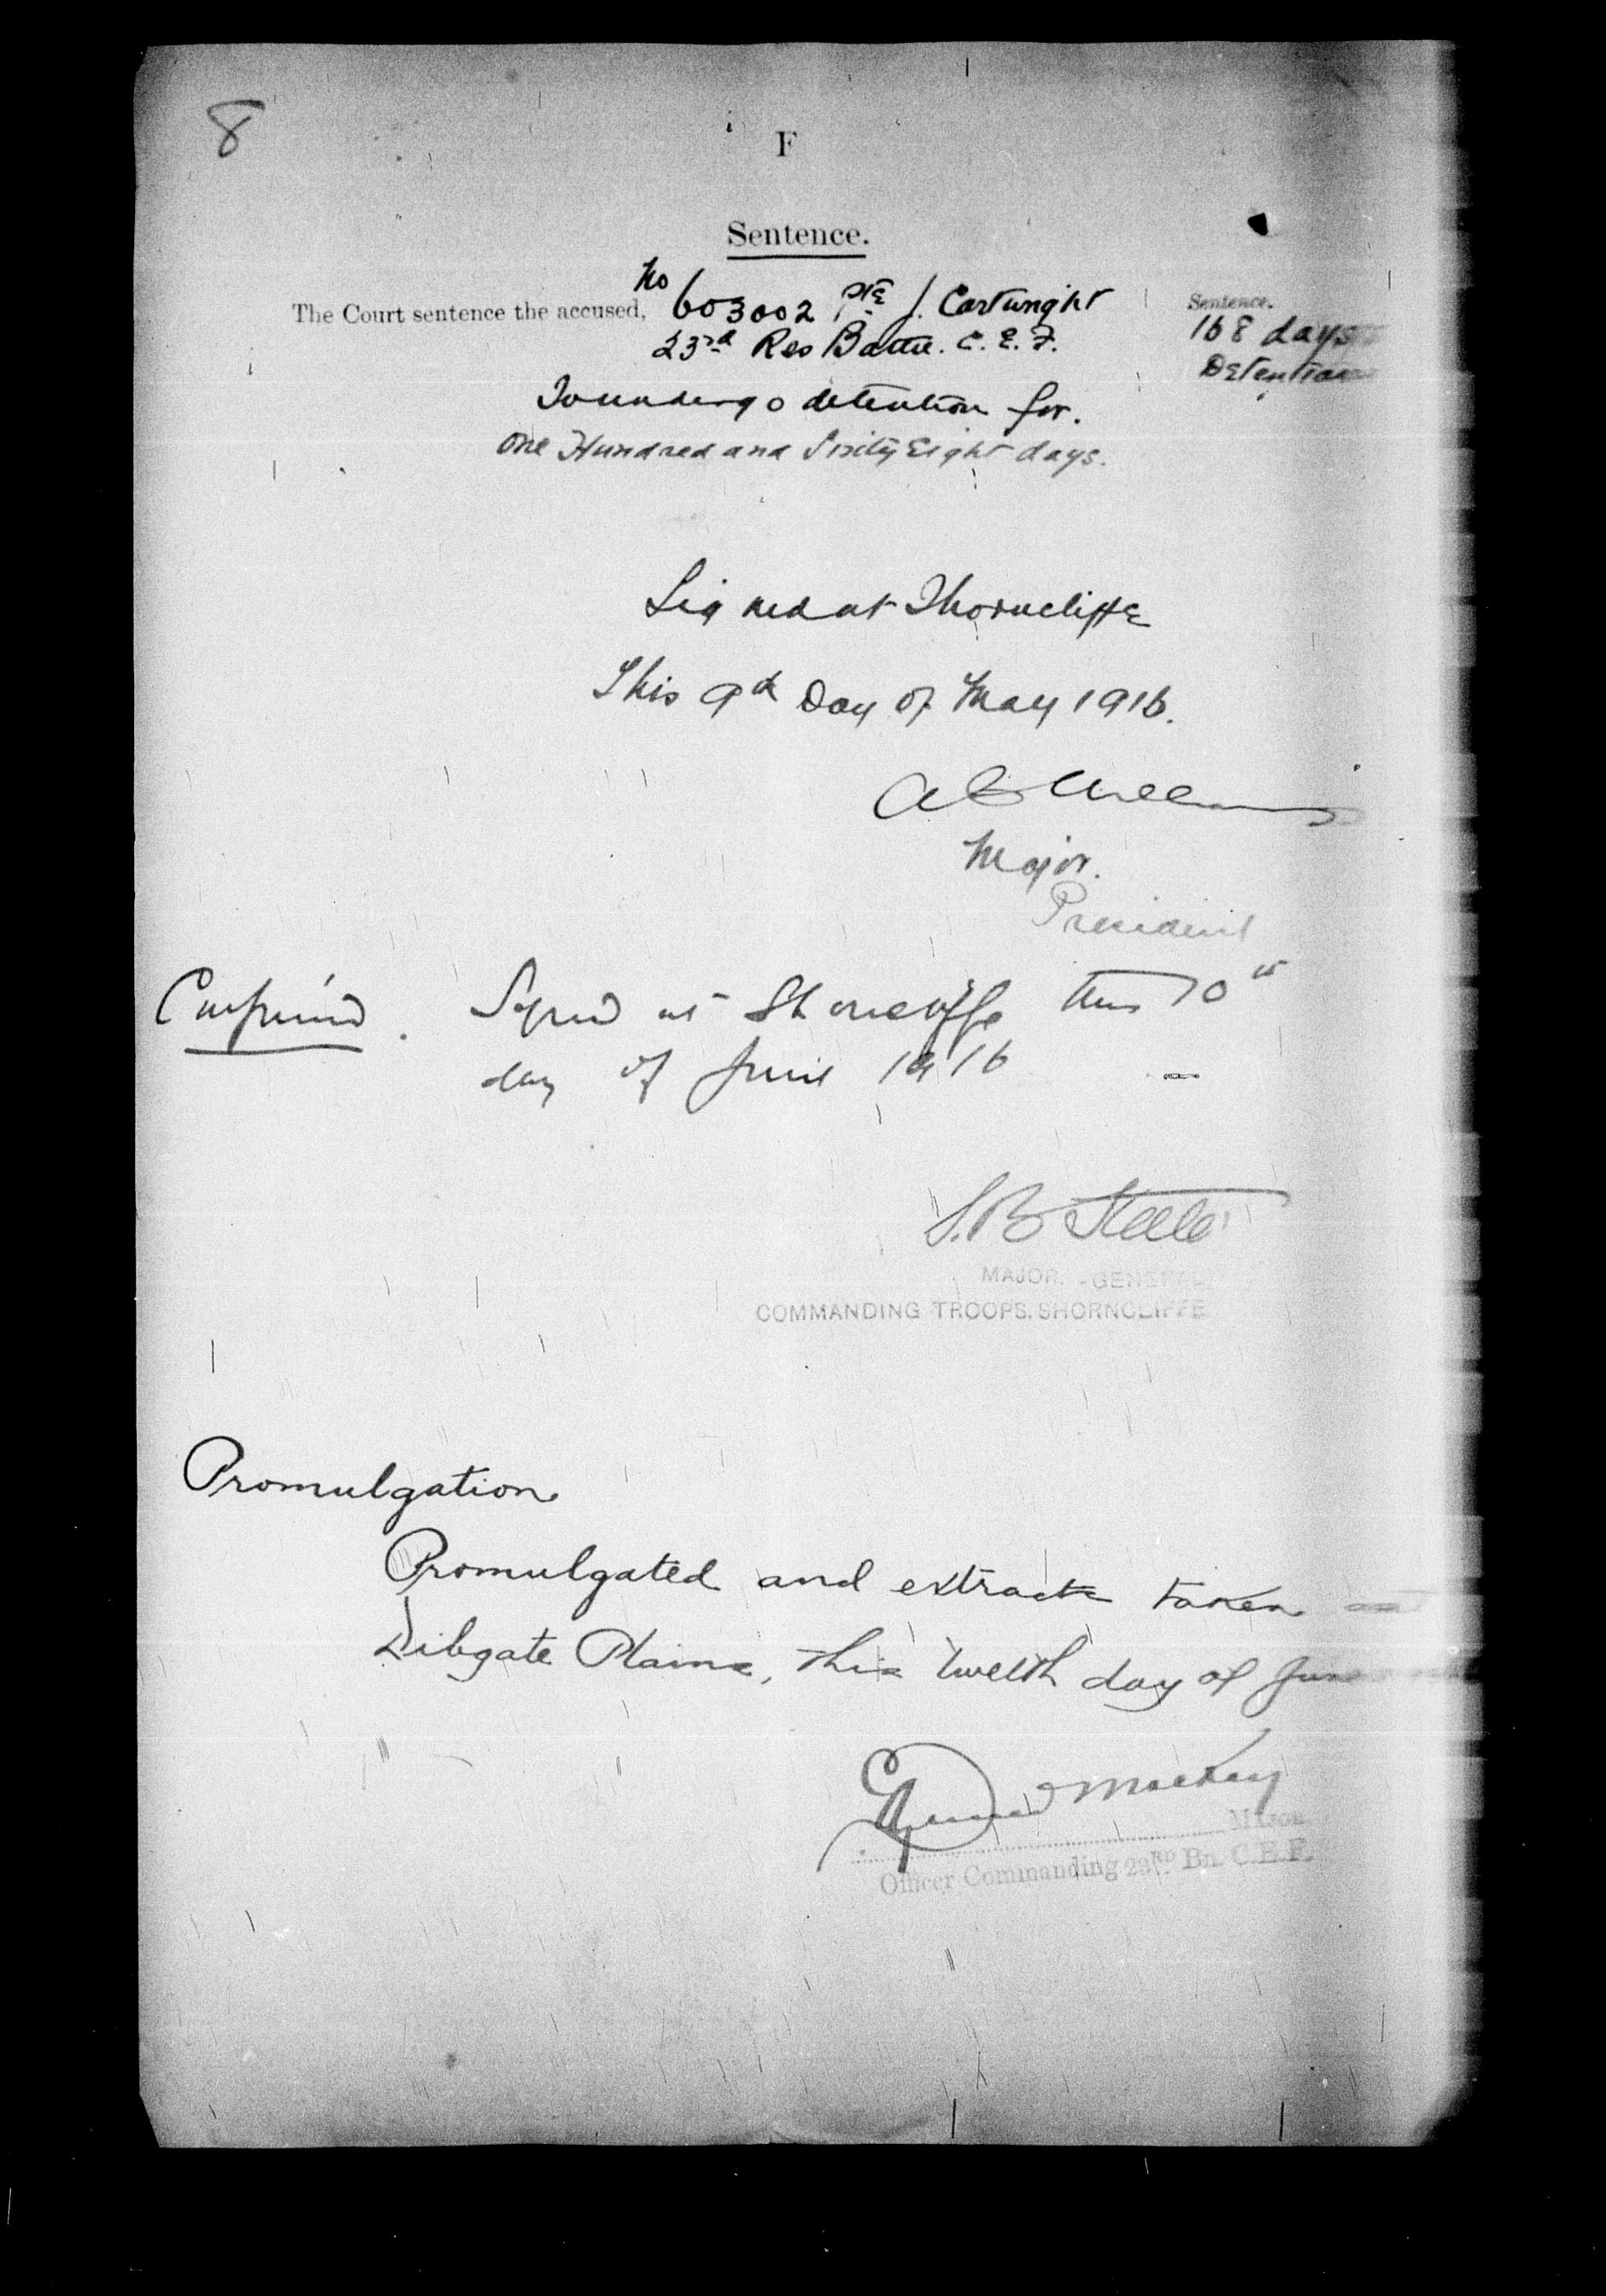 8
F
Sentence.
The Court sentence the accused, No 603002 Pte J. Cartwright
23rd Res Battn. C. E. F.
Sentence.
168 days
Detention
To undergo detention for.
One Hundred and Sixty Eight days.
Signed at Shorncliffe
This 9th Day of May 1916.
Major.
President
Confirmed. Signed at Shorncliffe this 10th
day of June 1916
S.B Steele
MAJOR. - GENERAL,
COMMANDING TROOPS. SHORNCLIFFE
Promulgation
Promulgated and extracts taken at
Dibgate Plains, this twelth day of June
Mackay
MAJOR
Officer Commanding 23RD Bn. C. E. F.